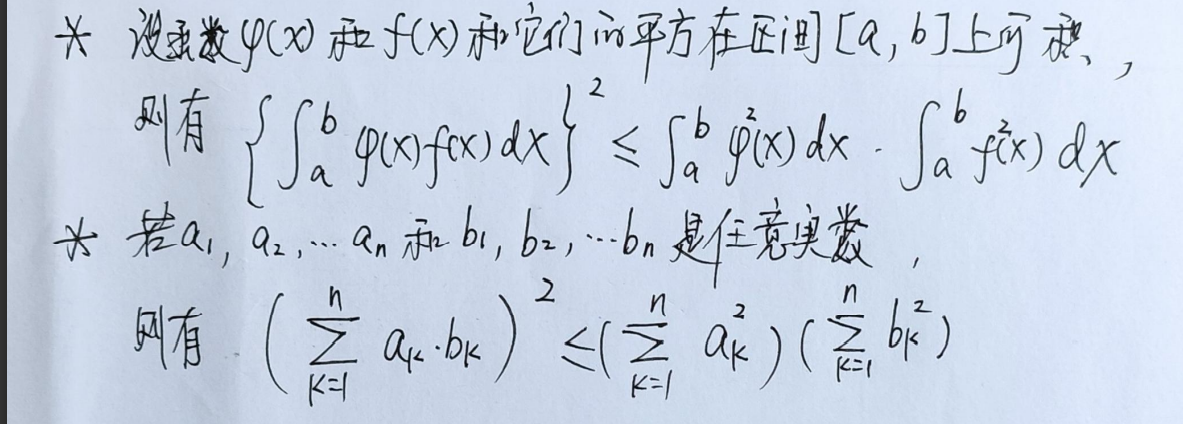 * 设函数φ(x)和f(x)和它们的平方在区间[a, b]上可积,
则有 {∫ₐᵇ φ(x)f(x)dx}² ≤ ∫ₐᵇ φ²(x)dx · ∫ₐᵇ f²(x)dx
* 若a₁, a₂, …aₙ和b₁, b₂, …bₙ是任意实数,
则有 (∑ₖ₌₁ⁿ aₖ·bₖ)² ≤ (∑ₖ₌₁ⁿ aₖ²)(∑ₖ₌₁ⁿ bₖ²)